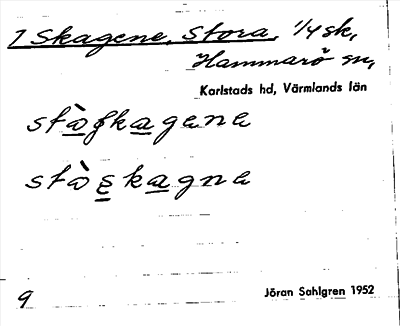 1 Skagene, Stora, 1/4 sk,
Hammarö sn,
Karlstads hd, Värmlands län
9
Jöran Sahlgren 1952